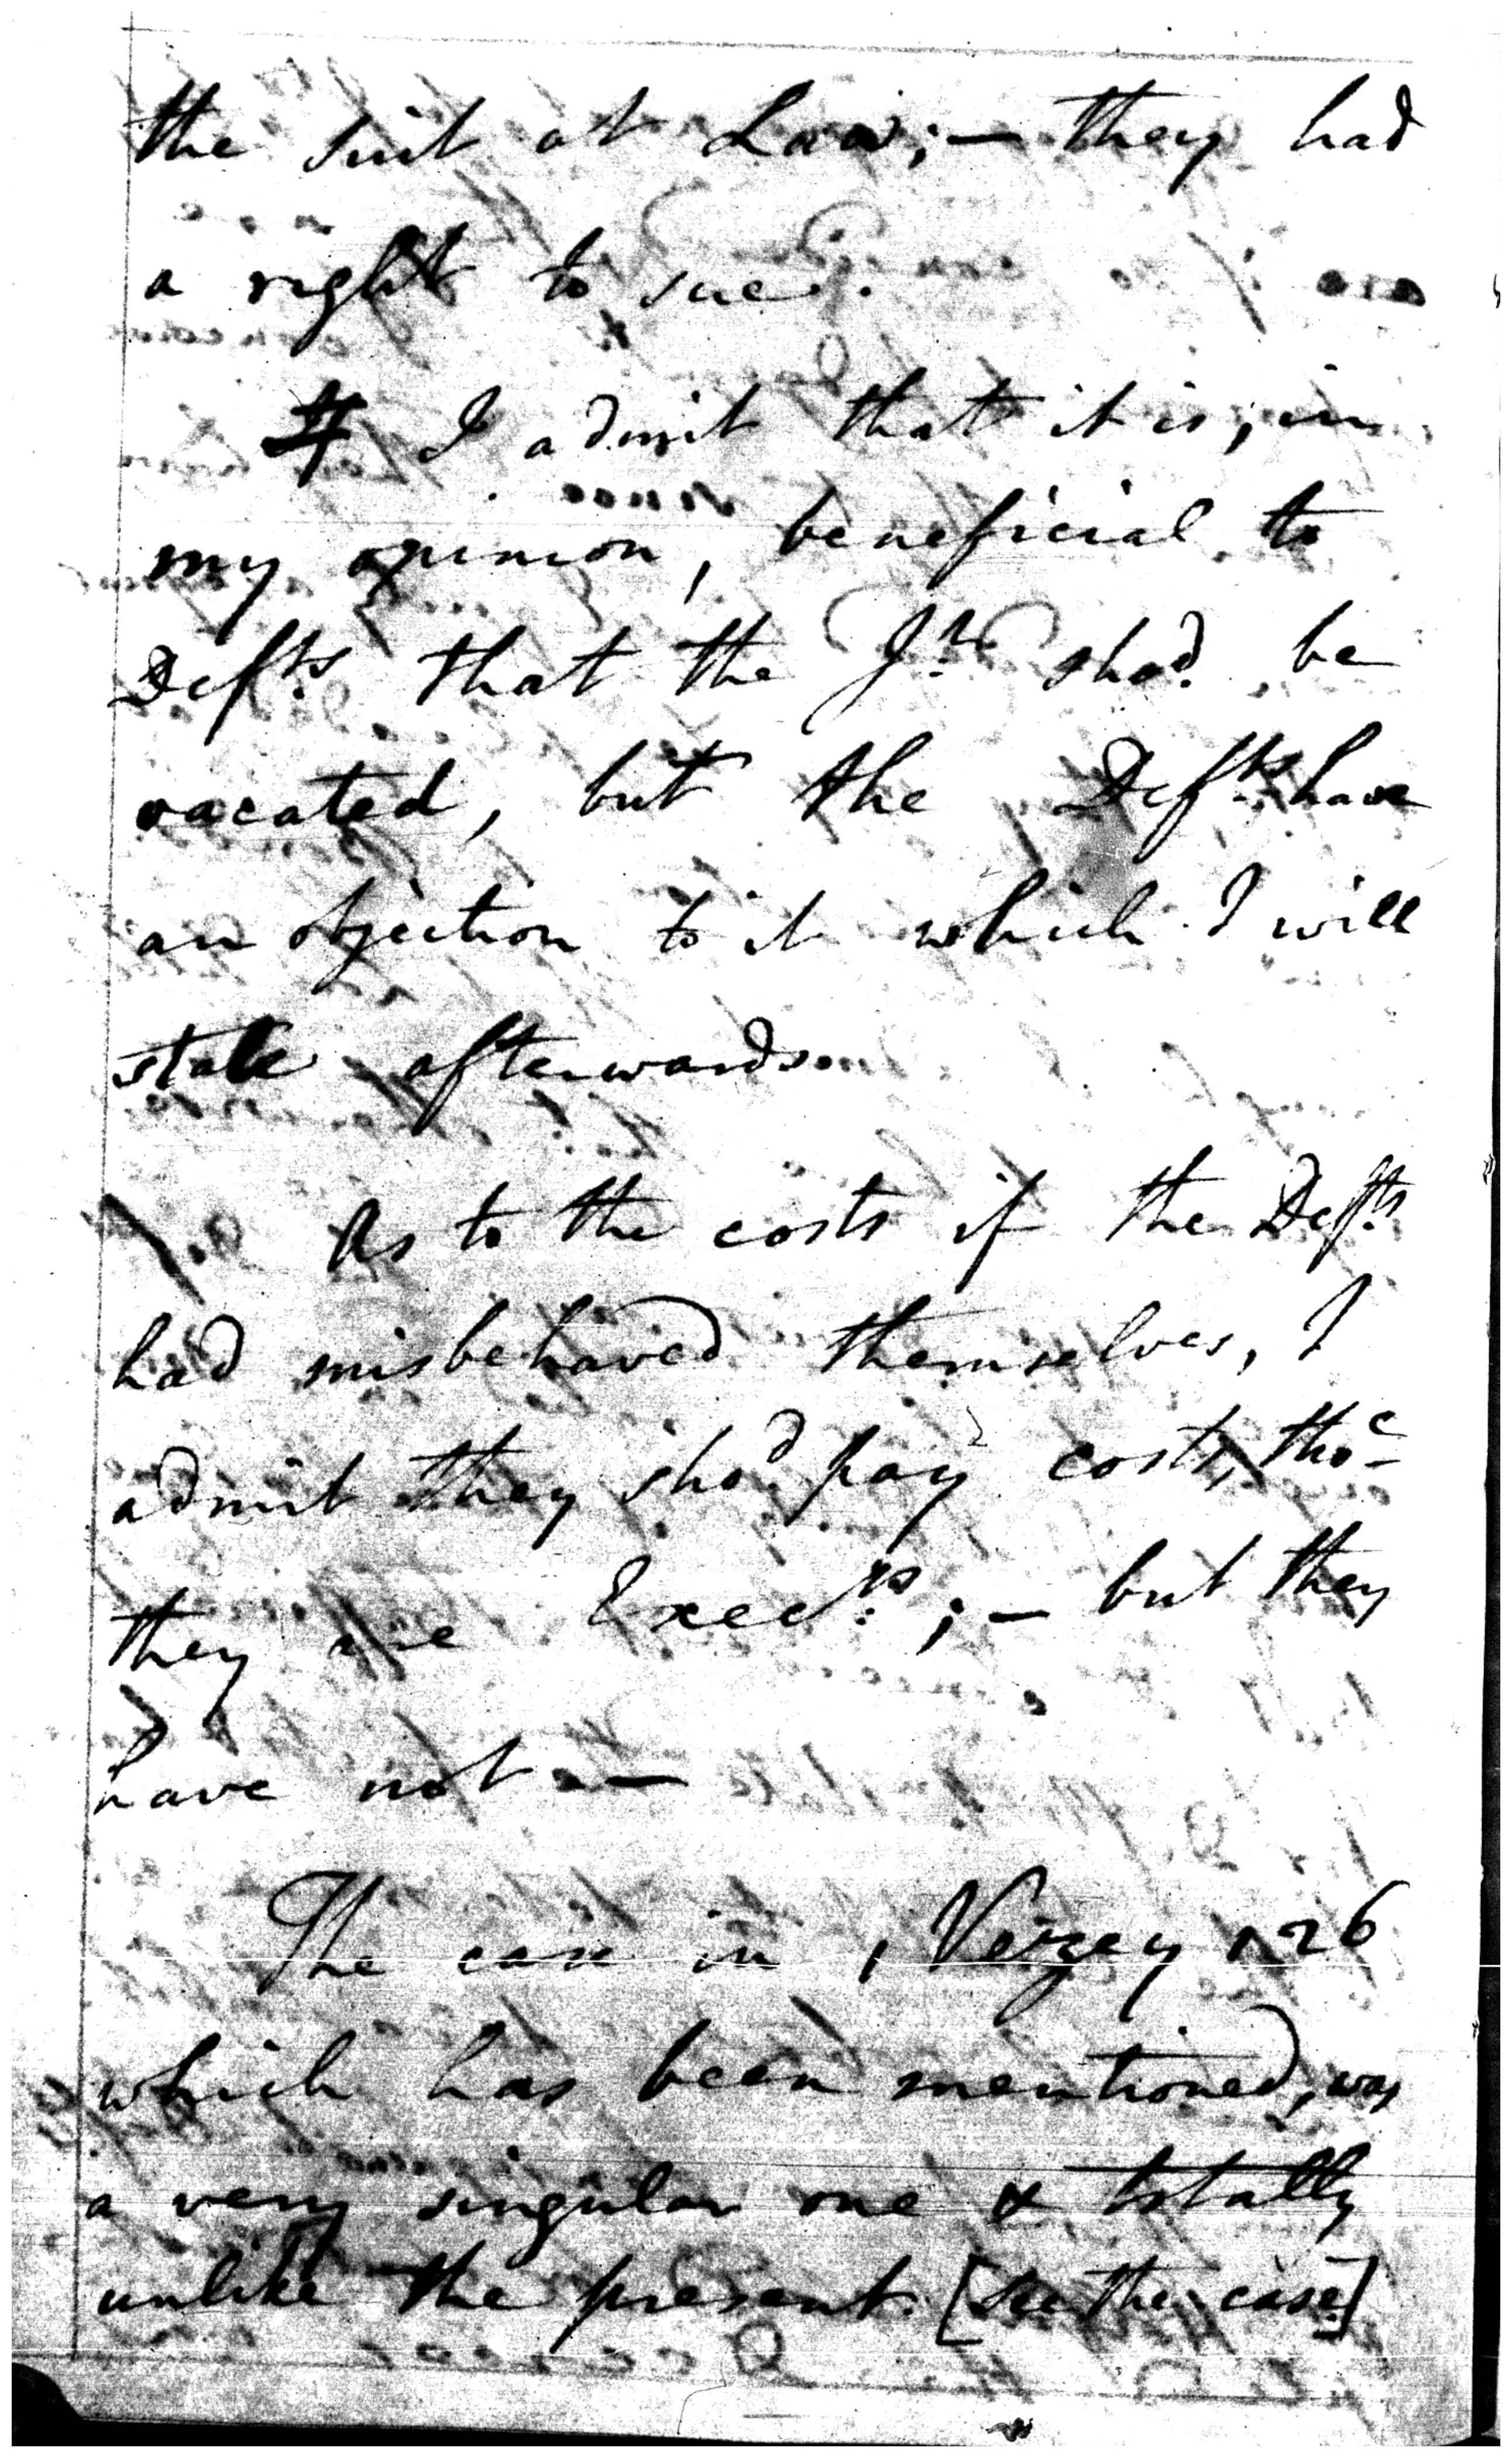 the suit at Law; — they had
a right to sue.
I admit that it is, in
my opinion, beneficial to
Defts that the Jt shod. be
vacated, but the Defts have
an objection to it which I will
state afterwards.
As to the costs if the Defts
had misbehaved themselves, I
admit they shod. pay costs, tho'
they are Execrs; — but they
have not. —
The case in 1 Vezey 126
which has been mentioned, was
a very singular one & totally
unlike the present. [See the case]